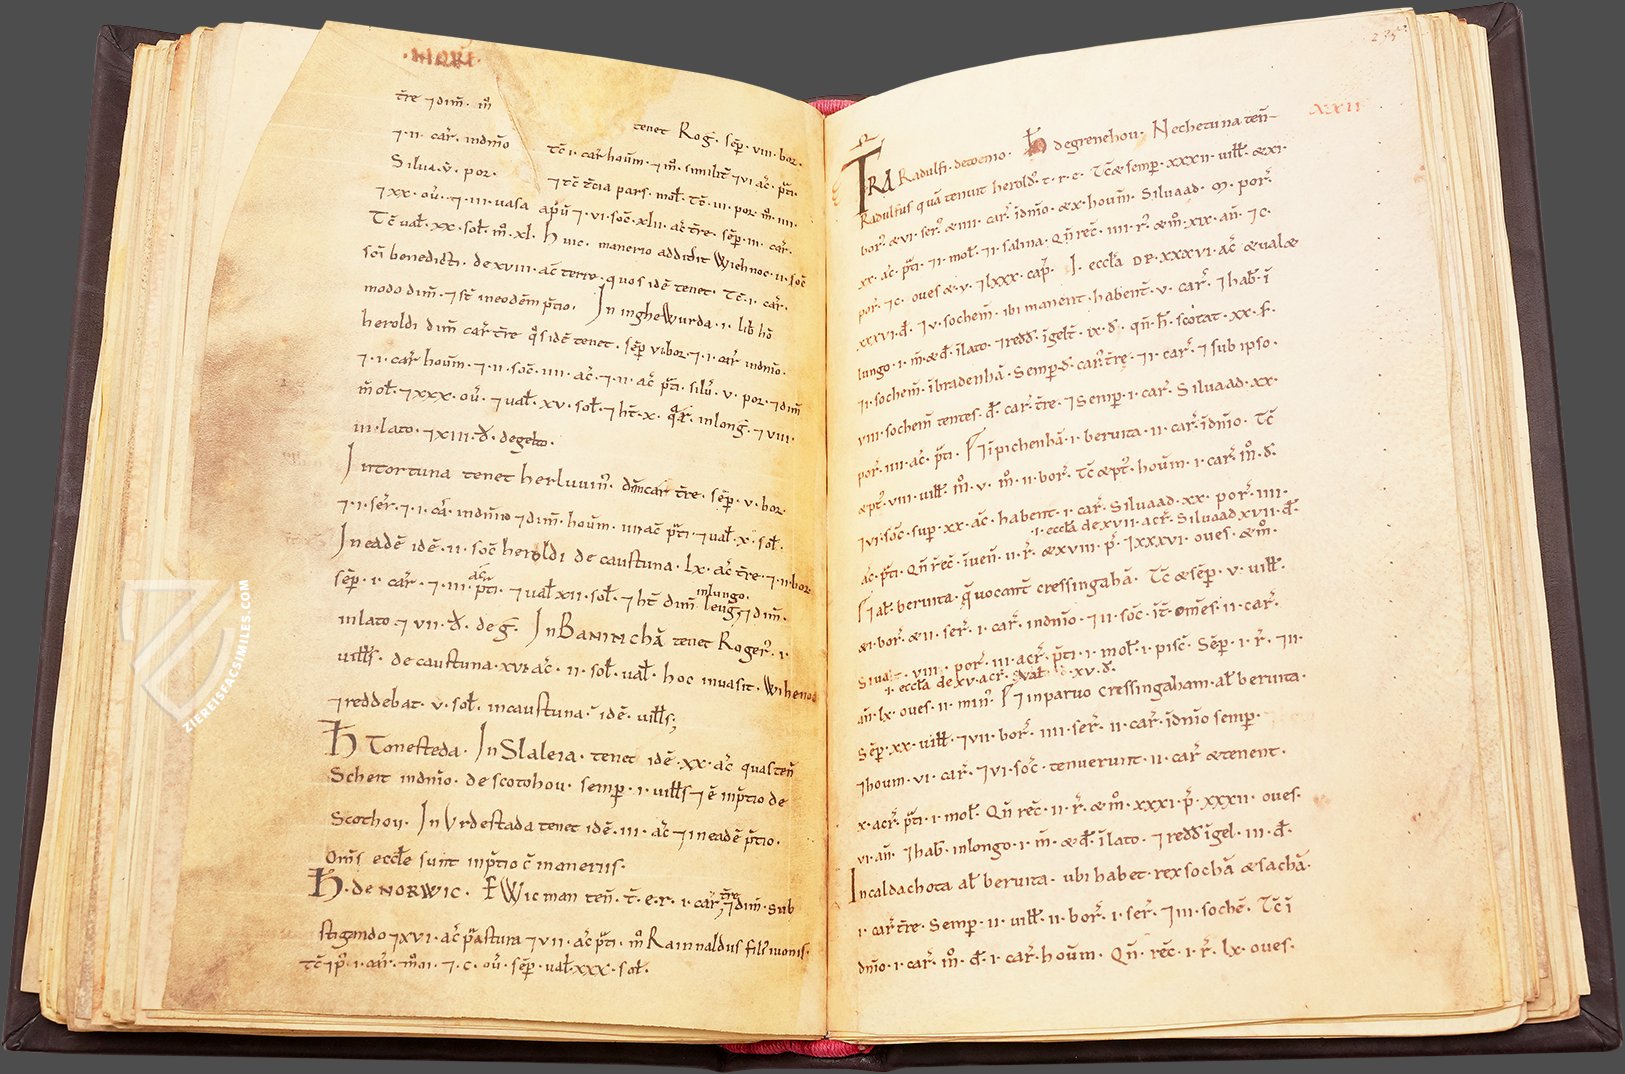 ·NORF·
t̄re ⁊ dim̄. m̊
tenet Rog̃. sēp. viii. bor.
⁊ ii. car̃. indnio
tc̄ i. car hoūm. ⁊ m̊. similit̃ ⁊ vi ac̃. p̃ti.
Silua. v̄. por.
⁊ tc̄ t̄cia pars. mol̃. Tc̄. vi. por m̊. iiii.
⁊ xx. où. ⁊ iii vasa apū ⁊. vi. soc̄. xlii. ac̃ t̄re. sēp. iii. car̃.
Tc̄ ual̃. xx. sol̃. m̊. xl. Huic. manerio addidit Wihenoc. ii. soc̄
sc̄i benedicti. de xviii. ac̃ terre. quos idē tenet. Tc̄. i. car̃.
modo dim̄. ⁊ st̄ in eodēm p̃tio. In ingheWurda. i. lib̃ hō
heroldi dim̄ car̃ t̄re q̊s idē tenet. sēp vi bor. ⁊. i. car̃ indnio.
⁊. i. car̃ hoūm. ⁊. ii. soc̄. iiii. ac̃. ⁊. ii. ac̃ p̃ti. silũ. v. por. ⁊ dim̄
m̄ol̃. ⁊ xxx. où. ⁊ ual̃. xv. sol̃. ⁊ ht̄. x. q̃r̃. in long̃. ⁊ viii.
in lato. ⁊ xiii. đ. de gelto.
In tortuna tenet herluuin̄. dim̄ car t̄re. sēp. v. bor.
⁊. i. ser̃. ⁊. i. cã. in dnio ⁊ dim̄. hoūm. uii ac̃ p̃ti. ⁊ ual̃. x. sol̃.
In eadē idē. ii. soc̄ heroldi de caustuna. lx. ac̃ t̄re. ⁊. ii. bor.
sēp. i. car̃. ⁊. iii. ac̃r̃ p̃ti. ⁊ ual̃ xii. sol̃. ⁊ ht̄ dim̄ leug̃ in lungo. ⁊ dim̄.
in lato ⁊ vii. đ. de g̃. In BANINCHĀ tenet Roger̃. i.
uill̃s. de caustuna. xvi ac̃. ii. sol̃. ual̃. hoc inuasit. Wihenoc
⁊ reddebat. v. sol̃. in caustuna. idē. uill̃s;
H Tonesteda. In Slaleia. tenet idē. xx. ac̃ quas ten̄
Scheit in dnio. de scotohou. semp. i. uill̃s ⁊ ē in p̃tio de
Scothou. In Vrdestada tenet idē. iii. ac̃ ⁊ in eadē p̃tio.
Om̄s eccl̃e sunt in p̃tio c̄ maneriis.
H. de NORWIC. EWicman ten̄. t̄. e. r. i. car̃ t̄re, ⁊ dim̄. sub
stigando ⁊ xvi. ac̃ p̃astura ⁊ vii. ac̃ p̃ti. m̊ Rainnaldus fili' iuonis.
Tc̄ ⁊ p̊. i. car̃. m̊. ii. ⁊. c. où. sēp. ual̃. xxx. sol̃.
235
XXII
TRA Radulfi. de toenio. H de grenehou. Nechetuna ten̄
Radulfus quā tenuit herold'. t. r. e. Tc̄ & semp. xxxii. uill̃. & xi.
bor̃. & vi. ser̃. & iiii. car̃. ī dnīo. & x. houm̄. Silua ad. M. por̃.
xx. ac̃. p̃ti. ⁊ i. mol̃. ⁊ i. salina. Qñ rec̄. iiii. r̃. & m̊. xix. an̄. ⁊ c.
por̃. ⁊ c. oues & . v. ⁊ lxxx. cap̃. I. eccl̃a DE. xxxvi. ac̃ & ual&
xxxvi. đ. ⁊ v. sochem̄. ibi manent. habent̄. v. car̃. ⁊ hab̃. ī
lungo. i. m̄ & đ. ī lato. ⁊ redd̃. ī gelt̄. ix. đ. qñ. h̃. scotat. xx. s̃.
⁊ i. sochem̄. ī bradenhā. Semp. đ. car̃. t̄re. ⁊ i. car̃. ⁊ sub ipso.
viii. sochem̄ tentes. đ. car̃. t̄re. ⁊ semp. i. car̃. Silua ad. xx.
por̃. iiii. ac̃. p̃ti. H̄ ī pichenhā. i. beruita. ii. car̃. ī dnīo. Tc̄
& p̃t. viii. uill̃. m̊. v. m̊. ii. bor̃. Tc̄ & p̃t. houm̄. i. car̃. m̊. đ.
⁊ vi. soc̄. sup. xx. ac̃. habent. i. car̃. Silua ad. xx. por̃. iiii.
.i. eccl̃a de xvii. acr̃. Silua ad xvii. đ.
ac̃. p̃ti. Qñ rec̄. īuen̄. ii. r̃. & xviii. p̃. ⁊ lxxxvi. oues. & m̊.
H̄ al̃. beruita. q̃ uocant̄ cressingahā. Tc̄ & sēp. v. uill̃.
& i. bor̃. & ii. ser̃. i. car̃. in dnīo. ⁊ ii. soc̄. it̄. om̄es. ii. car̃.
Silua t. viii. por̃. iii. acr̃. p̃ti. i. mol̃. i. pisc̄. Sēp. i. r̃. ⁊ ii.
.i. eccl̃a de xv. acr̃. & ual̃ xv. đ.
an̄. lx. oues. ii. min̄. H̄ in paruo cressingaham. al̃ beruita.
Sēp. xx. uill̃. ⁊ vii. bor̃. iiii. ser̃. ii. car̃. ī dnīo semp.
⁊ houm. vi. car̃. ⁊ vi. soc̄. tenuerunt. ii. car̃ & tenent.
x. acr̃. p̃ti. i. mol̃. Qñ rec̄. ii. r̃. & m̊. xxxi. p̃. xxxii. oues.
vi. an̄. ⁊ hab̃. in longo. i. m̄. & đ. ī lato. ⁊ redd̃ ī gel. iii. đ.
In caldachota al̃ beruita. ubi habet rex sochā & sachā.
i. car̃ t̄re. Semp. ii. uill̃. ii. bor̃. i. ser̃. ⁊ iii. sochē. Tc̄ ī
dnīo. i. car̃. m̊. đ. i. car̃. houm̄. Qñ. rec̄. i. r̃. lx. oues.
ZIEREISFACSIMILES.COM